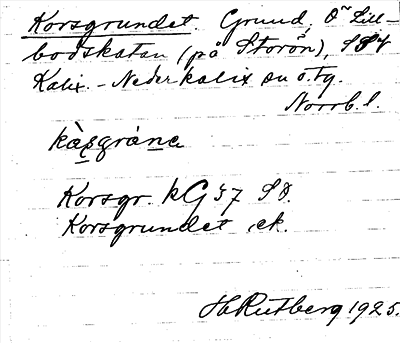 Korsgrundet. Grund, O~ Lill-
bodskatan (på Storön), S
Kalix. - Nederkalix sn ö. tg.
Norrb. l.
kàsgránе
Korsgr. kG 57 SO.
Korsgrundet ek.
Rutberg 1925.